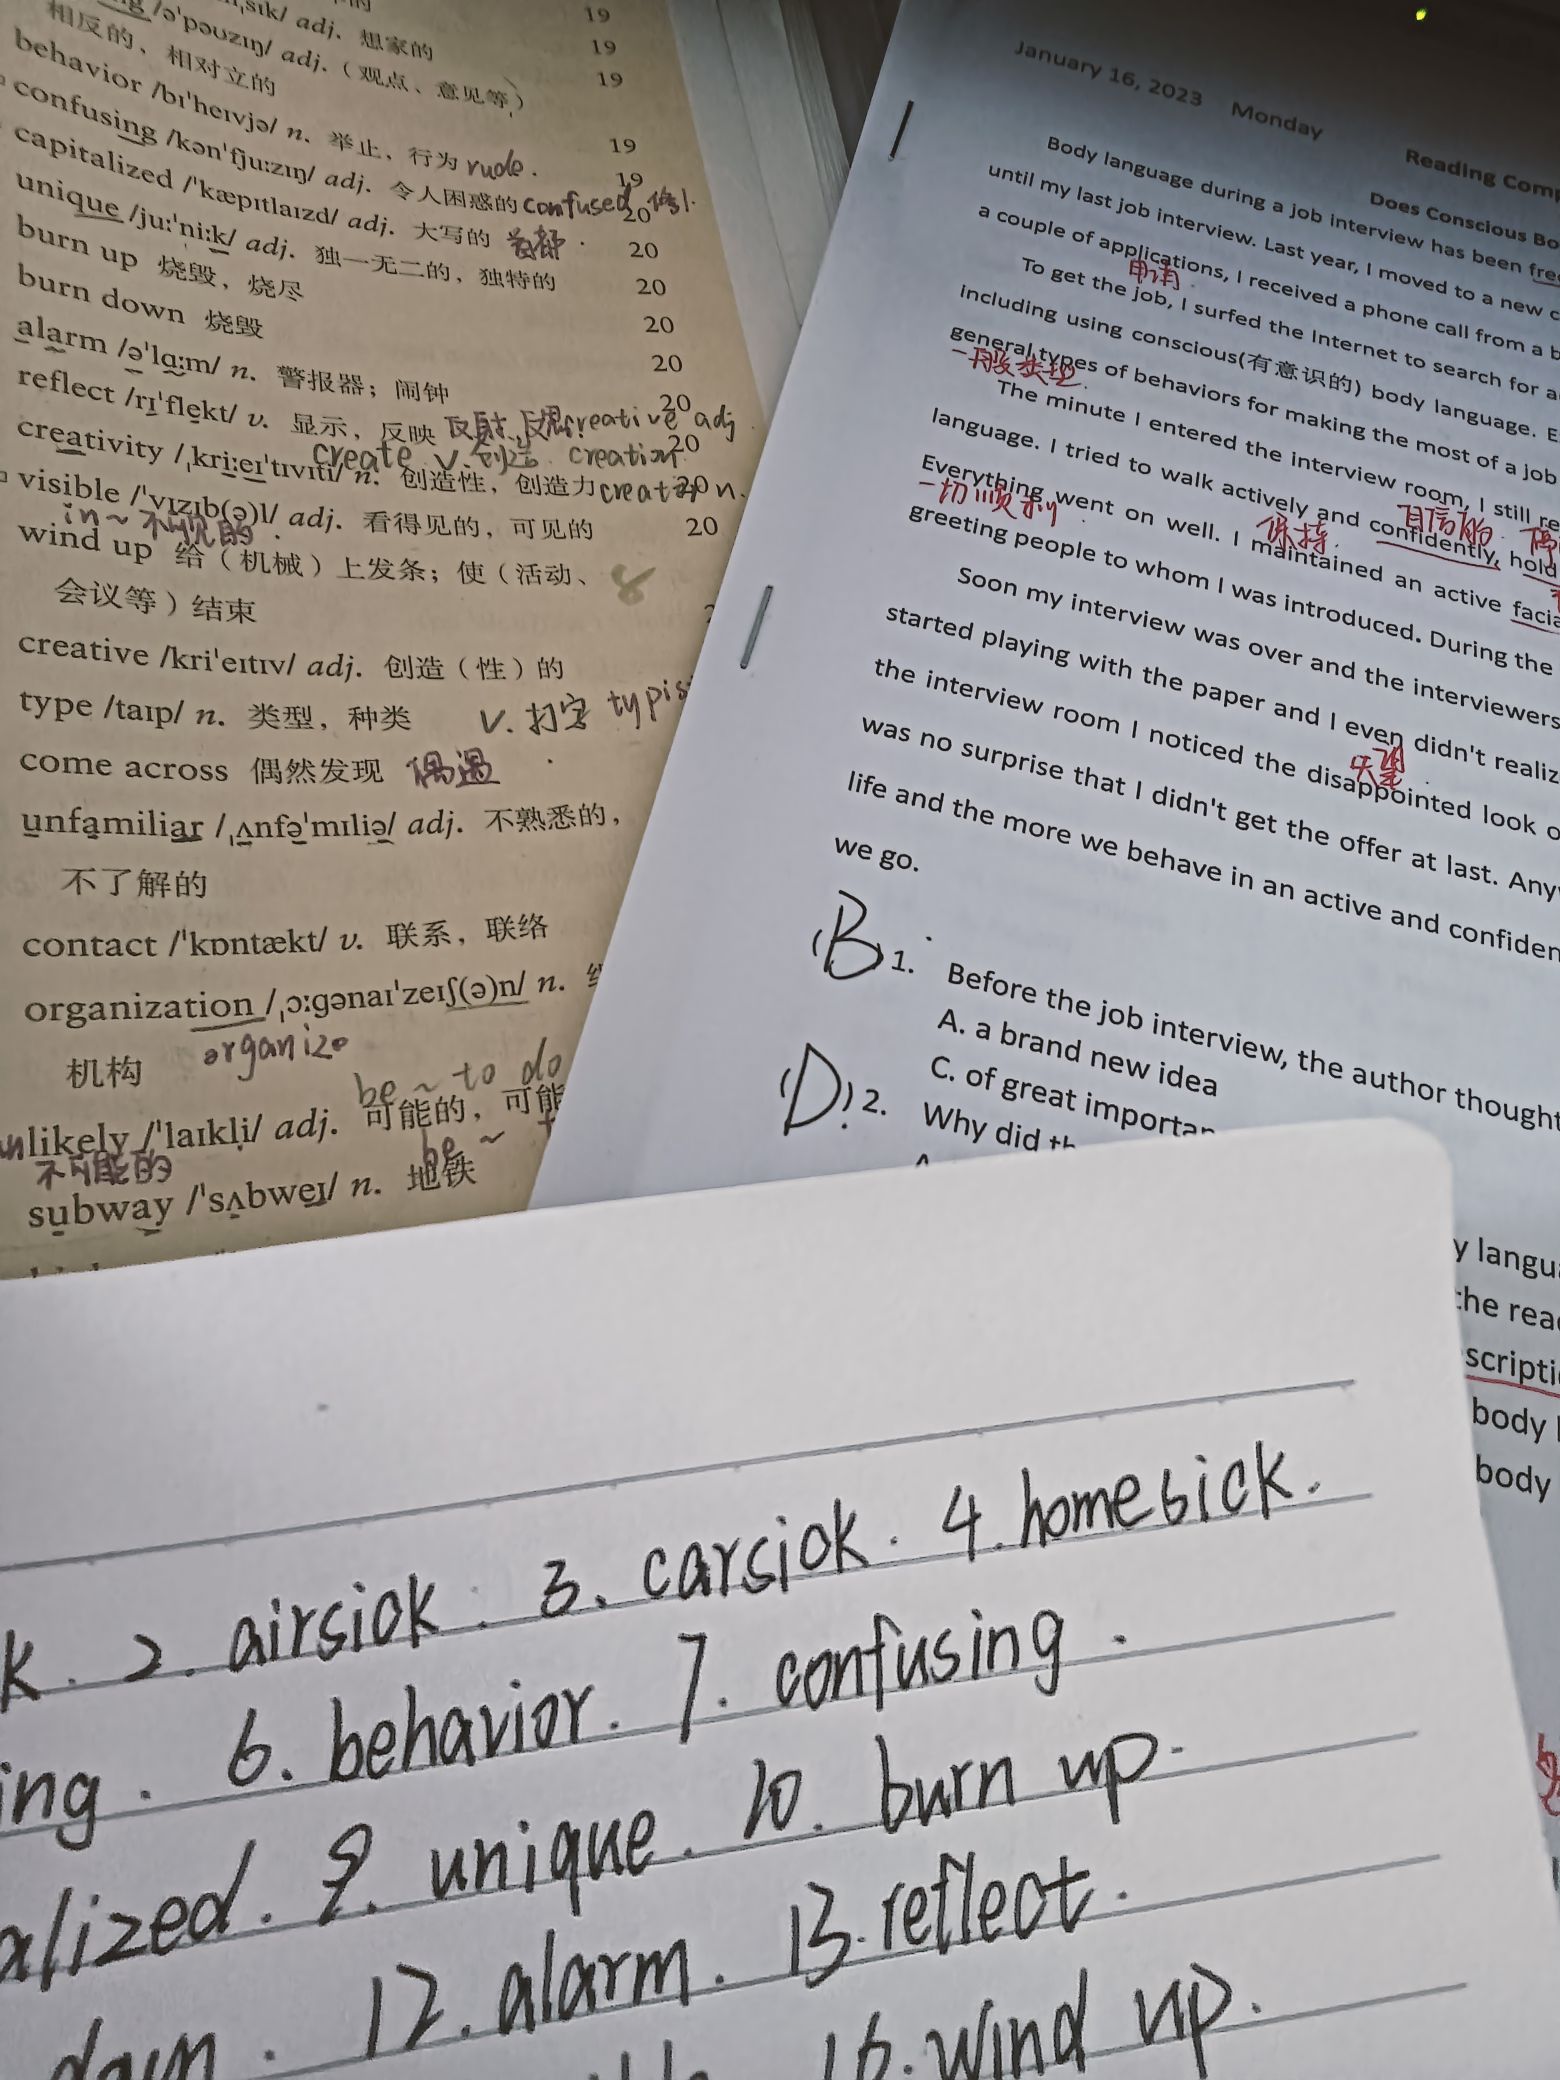 /ə'pəʊzɪŋ/ adj. 想家的 19
相反的、相对立的 adj.（观点、意见等） 19
19
behavior /bɪ'heɪvjə/ n. 举止，行为 rude. 19
confusing /kən'fju:zɪŋ/ adj. 令人困惑的 confused 19
capitalized /'kæpɪtlaɪzd/ adj. 大写的 首都 20
unique /ju:'ni:k/ adj. 独一无二的，独特的 20
burn up 烧毁，烧尽 20
burn down 烧毁 20
alarm /ə'lɑ:m/ n. 警报器；闹钟 20
reflect /rɪ'flekt/ v. 显示，反映 反射 20
creative adj
create v. 创造 creation
creativity /ˌkri:eɪ'tɪvɪti/ n. 创造性，创造力 20
visible /'vɪzɪb(ə)l/ adj. 看得见的，可见的 20
in~不可见的
wind up 给（机械）上发条；使（活动、
会议等）结束
creative /kri'eɪtɪv/ adj. 创造（性）的
type /taɪp/ n. 类型，种类 v. 打字 typis
come across 偶然发现 偶遇
unfamiliar /ˌʌnfə'mɪliə/ adj. 不熟悉的，
不了解的
contact /'kɒntækt/ v. 联系，联络
organization /ˌɔ:gənaɪ'zeɪʃ(ə)n/ n.
机构 organize
be ~ to do
unlikely /'laɪkli/ adj. 可能的，可能
不可能的 be ~
subway /'sʌbweɪ/ n. 地铁
January 16, 2023 Monday
Reading Comp
Does Conscious Bo
Body language during a job interview has been fre
until my last job interview. Last year, I moved to a new c
a couple of applications, I received a phone call from a b
申请
To get the job, I surfed the Internet to search for a
including using conscious(有意识的) body language. E
general types of behaviors for making the most of a job
一般类型
The minute I entered the interview room, I still re
language. I tried to walk actively and confidently, hold
自信的
Everything went on well. I maintained an active facia
一切顺利 保持
greeting people to whom I was introduced. During the
Soon my interview was over and the interviewers
started playing with the paper and I even didn't realiz
the interview room I noticed the disappointed look o
失望
was no surprise that I didn't get the offer at last. Any
life and the more we behave in an active and confiden
we go.
(B) 1. Before the job interview, the author thought
A. a brand new idea
C. of great importan
(D) 2. Why did th
y langua
the rea
scripti
body l
body
k. 2. airsick. 3. carsick. 4. homesick.
ing. 6. behavior. 7. confusing.
alized. 9. unique. 10. burn up.
down. 12. alarm. 13. reflect.
16. wind up.